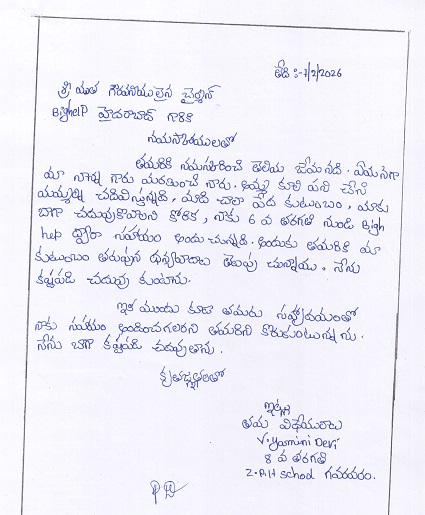 తేది :- 7/2/2026
శ్రీ యుత గౌరవనీయులైన ఛైర్మన్
BigHelP హైదరాబాద్ గారికి
నమస్కారములతో
తమరికి నమస్కరించి తెలియ జేయునది. ఏమనగా
మా నాన్న గారు మరణించి నారు. అమ్మ కూలి పని చేసి
మమ్మల్ని చదివిస్తున్నది, మాది చాలా పేద కుటుంబం, మాకు
బాగా చదువుకోవాలని కోరిక, నాకు 6 వ తరగతి నుండి Bigh
help ద్వారా సహాయం అందు చున్నది. అందుకు తమరికి మా
కుటుంబం తరుపున ధన్యవాదాలు తెలుపు చున్నాము. నేను
కష్టపడి చదువు కుంటాను.
ఇక ముందు కూడా తమరు సహృదయంతో
నాకు సహాయం అందించగలరని తమరిని కోరుకుంటున్నాను.
నేను బాగా కష్టపడి చదువుతాను.
కృతజ్ఞతలతో
ఇట్లు
తమ విధేయురాలు
V. Yamini Devi
8 వ తరగతి
Z.P.H School గవరవరం.